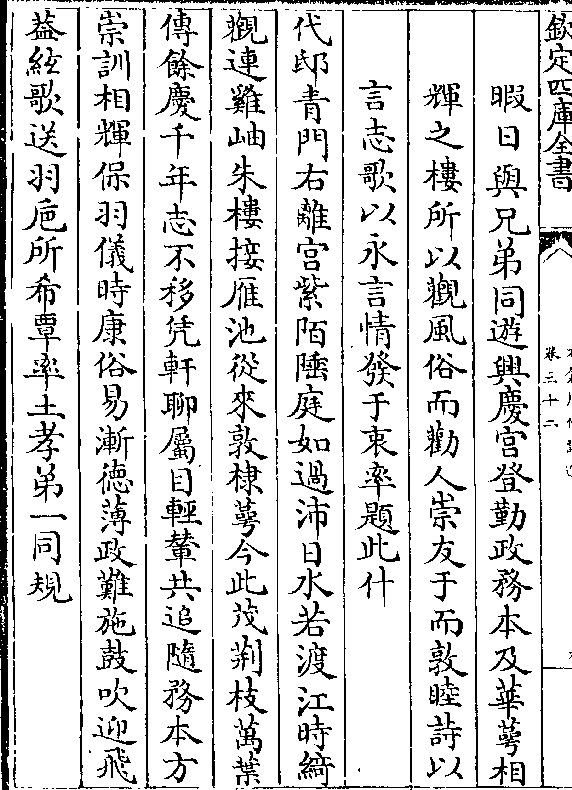 欽定四庫全書
卷三十二
暇日與兄弟同遊興慶宫登勤政務本及華萼相
輝之樓所以觀風俗而勸人崇友于而敦睦詩以
言志歌以永言情發于衷率題此什
代邸青門右離宫紫陌陲庭如過沛日水若渡江時綺
觀連雞岫朱樓接雁池從來敦棣萼今此茂荆枝萬葉
傳餘慶千年志不移凭軒聊屬目輕輦共追隨務本方
崇訓相輝保羽儀時康俗易漸徳薄政難施鼓吹迎飛
葢絃歌送羽巵所希覃率土孝弟一同規